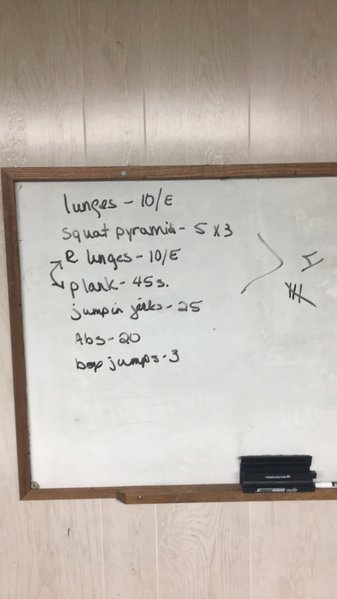 lunges - 10/E
squat pyramid - 5 x 3
R. lunges - 10/E
plank - 45s.
jumpin jacks - 25
Abs - 20
jumps - 3